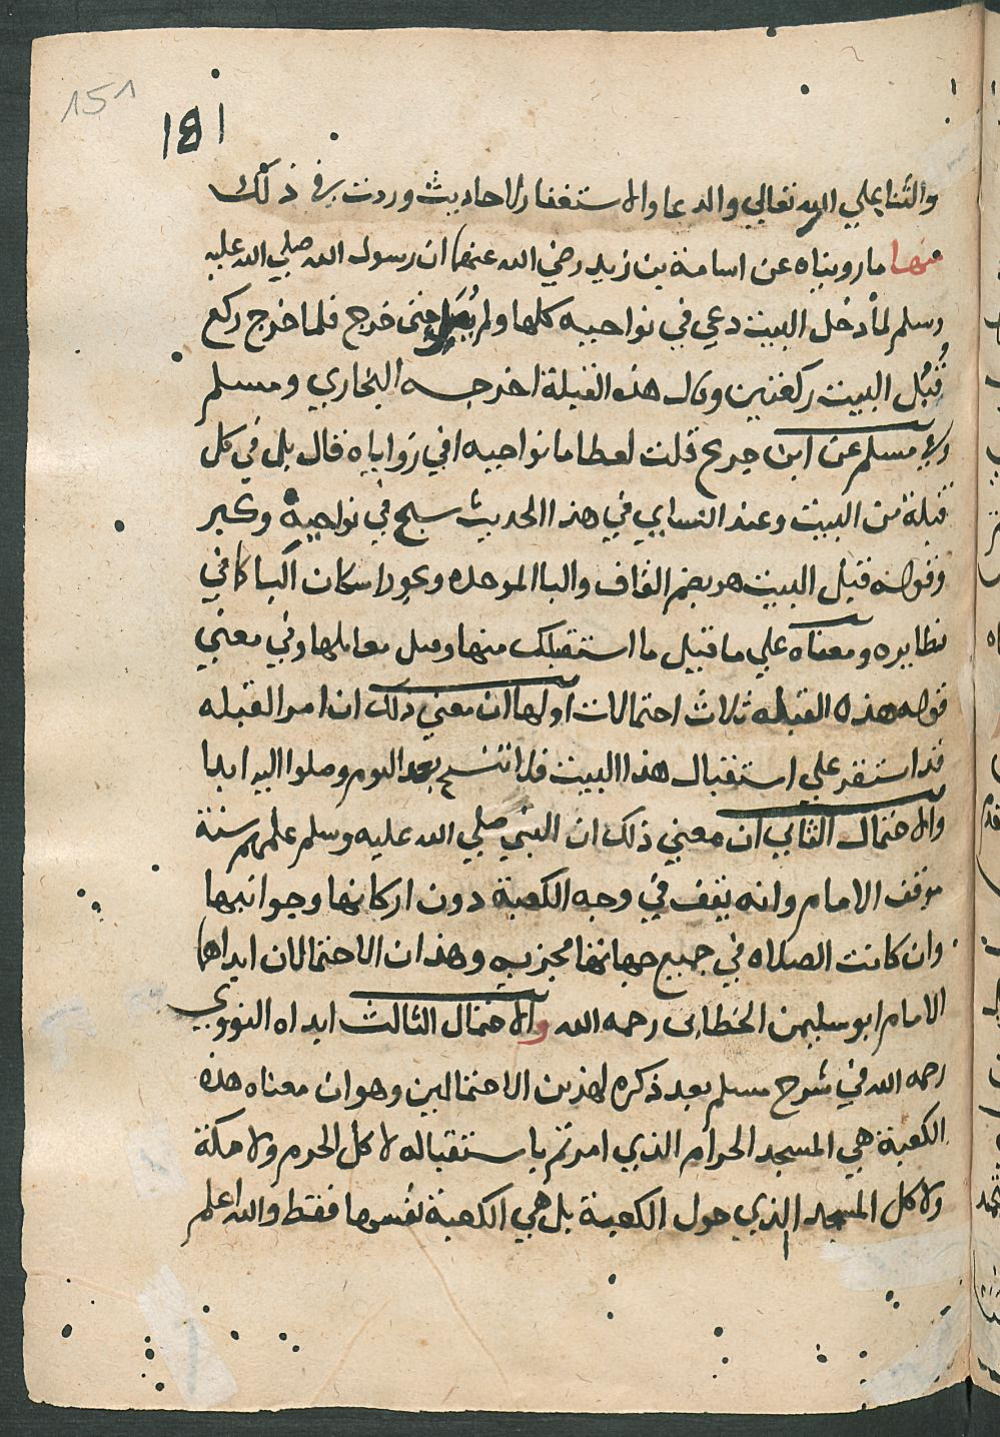 151
181
والثنا علي الله تعالي والدعا والاستغفار لاحاديث وردت في ذلك
منها ما رويناه عن اسامة بن زيد رضي الله عنهما ان رسول الله صلي الله عليه
وسلم لما دخل البيت دعي في نواحيه كلها ولم يُصَل حتى خرج فلما خرج ركع
قُبُل البيت ركعتين وقال هذه القبلة اخرجه البخاري ومسلم
ولمسلم عن ابن جريج قلت لعطا ما نواحيه افي زواياه قال بلى في كل
قبلة من البيت وعند النسايي في هذا الحديث سبح في نواحيه وكبر
وقوله قبل البيت هو بضم القاف والبا الموحده ويجوز اسكان البا كما في
نظايره ومعناه علي ما قيل ما استقبلك منها وقيل مقابلها وفي معني
قوله هذه القبله ثلاث احتمالات اولها ان معني ذلك ان امر القبله
قد استقر علي استقبال هذا البيت فلا تنسخ بعد اليوم وصلوا اليه ابدا
والاحتمال الثاني ان معني ذلك ان النبي صلي الله عليه وسلم علمهم سنة
موقف الامام وانه يقف في وجه الكعبة دون اركانها وجوانبها
وان كانت الصلاه في جميع جهاتها مجزيه وهذان الاحتمالان ابداهما
الامام ابو سليمن الخطابي رحمه الله والاحتمال الثالث ابداه النووي
رحمه الله في شرح مسلم بعد ذكره لهذين الاحتمالين وهو ان معناه هذه
الكعبة هي المسجد الحرام الذي امرتم باستقباله لا كل الحرم ولا مكة
ولا كل المسجد الذي حول الكعبة بل هي الكعبة نفسها فقط والله اعلم